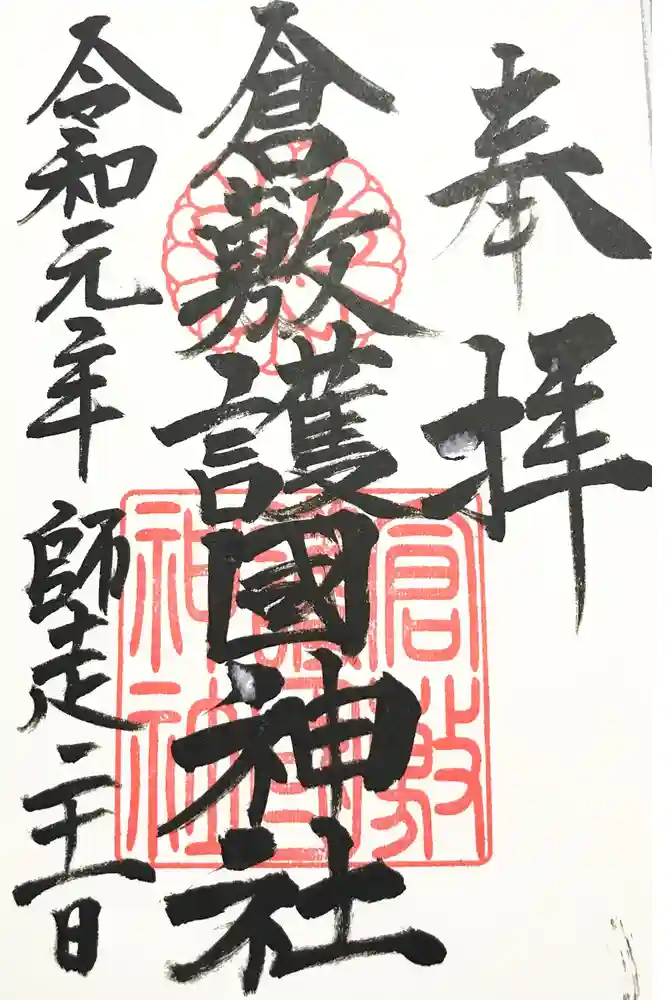 奉拝
倉敷護國神社
令和元年 師走 二十一日
倉敷